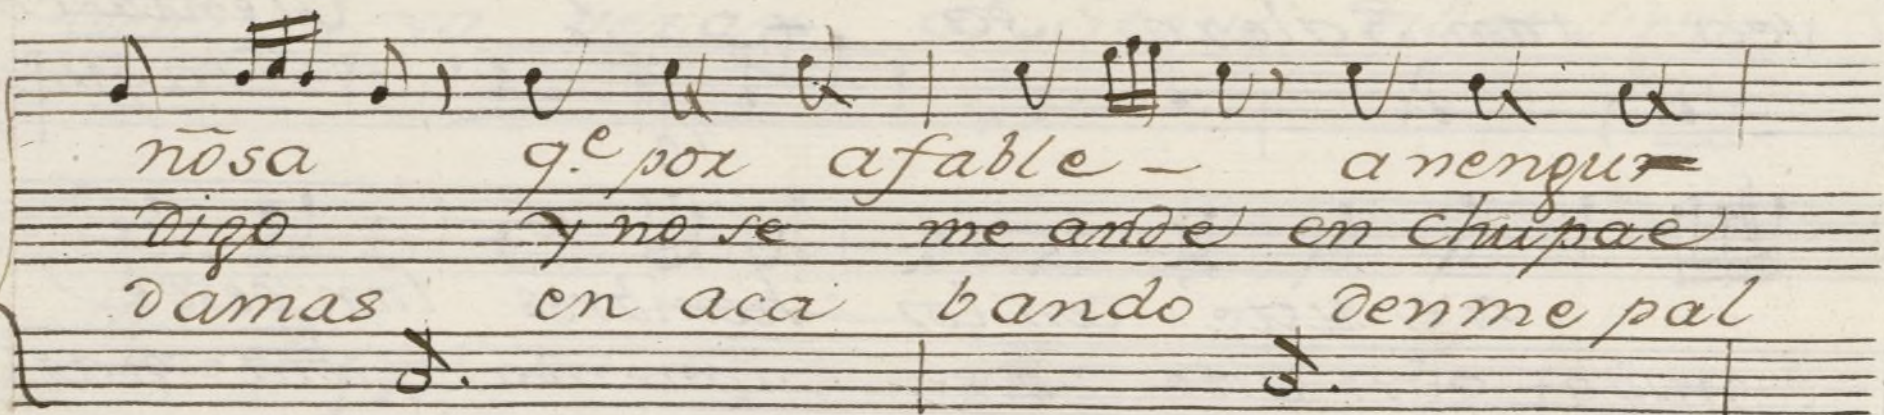 nõsa q.e por afable - a nengu-
digo y no se me ande en chupa e
damas en aca bando denme pal